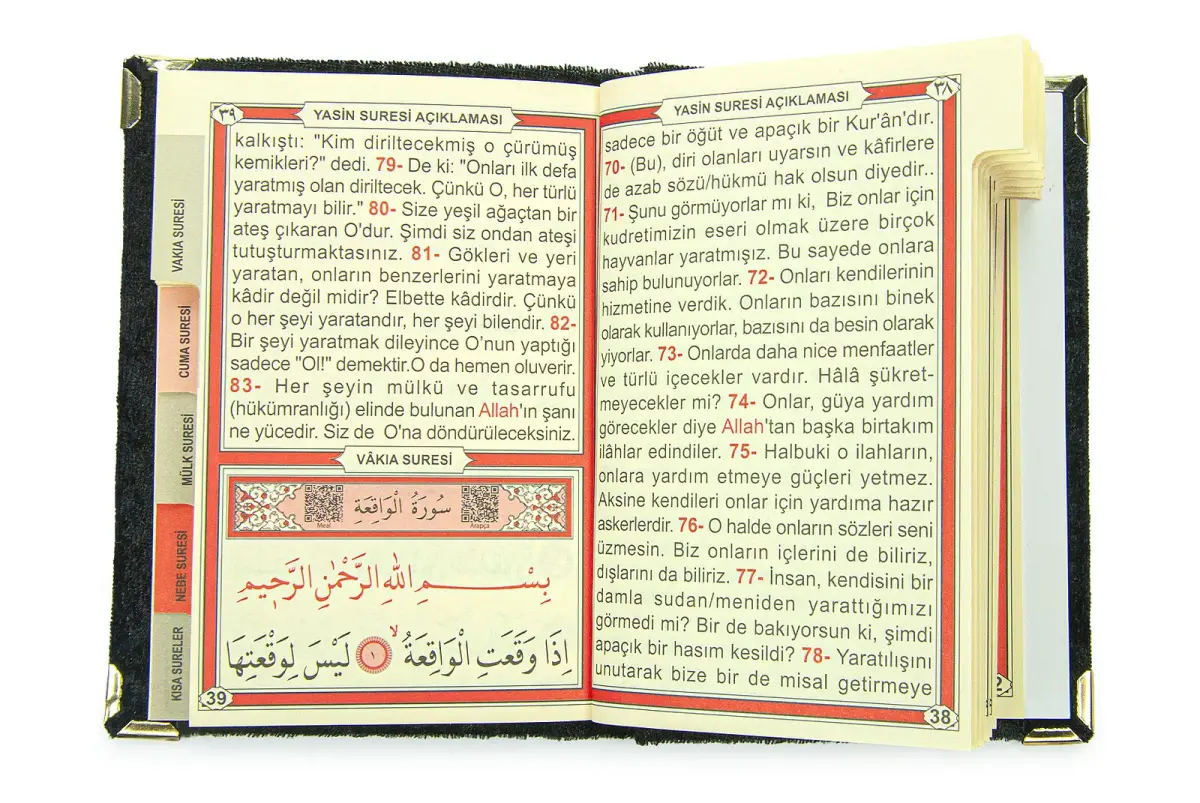 YASİN SURESİ AÇIKLAMASI
٣٨
sadece bir öğüt ve apaçık bir Kur'ân'dır.
70- (Bu), diri olanları uyarsın ve kâfirlere
de azab sözü/hükmü hak olsun diyedir..
71- Şunu görmüyorlar mı ki, Biz onlar için
kudretimizin eseri olmak üzere birçok
hayvanlar yaratmışız. Bu sayede onlara
sahip bulunuyorlar. 72- Onları kendilerinin
hizmetine verdik. Onların bazısını binek
olarak kullanıyorlar, bazısını da besin olarak
yiyorlar. 73- Onlarda daha nice menfaatler
ve türlü içecekler vardır. Hâlâ şükret-
meyecekler mi? 74- Onlar, güya yardım
görecekler diye Allah'tan başka birtakım
ilâhlar edindiler. 75- Halbuki o ilahların,
onlara yardım etmeye güçleri yetmez.
Aksine kendileri onlar için yardıma hazır
askerlerdir. 76- O halde onların sözleri seni
üzmesin. Biz onların içlerini de biliriz,
dışlarını da biliriz. 77- İnsan, kendisini bir
damla sudan/meniden yarattığımızı
görmedi mi? Bir de bakıyorsun ki, şimdi
apaçık bir hasım kesildi? 78- Yaratılışını
unutarak bize bir de misal getirmeye
38
٣٩
YASİN SURESİ AÇIKLAMASI
kalkıştı: "Kim diriltecekmiş o çürümüş
kemikleri?" dedi. 79- De ki: "Onları ilk defa
yaratmış olan diriltecek. Çünkü O, her türlü
yaratmayı bilir." 80- Size yeşil ağaçtan bir
ateş çıkaran O'dur. Şimdi siz ondan ateşi
tutuşturmaktasınız. 81- Gökleri ve yeri
yaratan, onların benzerlerini yaratmaya
kâdir değil midir? Elbette kâdirdir. Çünkü
o her şeyi yaratandır, her şeyi bilendir. 82-
Bir şeyi yaratmak dileyince O'nun yaptığı
sadece "Ol!" demektir.O da hemen oluverir.
83- Her şeyin mülkü ve tasarrufu
(hükümranlığı) elinde bulunan Allah'ın şanı
ne yücedir. Siz de O'na döndürüleceksiniz.
VÂKIA SURESİ
سُورَةُ الْوَاقِعَةِ
Meal
Arapça
بِسْمِ اللهِ الرَّحْمٰنِ الرَّحِيمِ
اِذَا وَقَعَتِ الْوَاقِعَةُ ۙ ١ لَيْسَ لِوَقْعَتِهَا
39
VAKIA SURESİ
CUMA SURESİ
MÜLK SURESİ
NEBE SURESİ
KISA SURELER